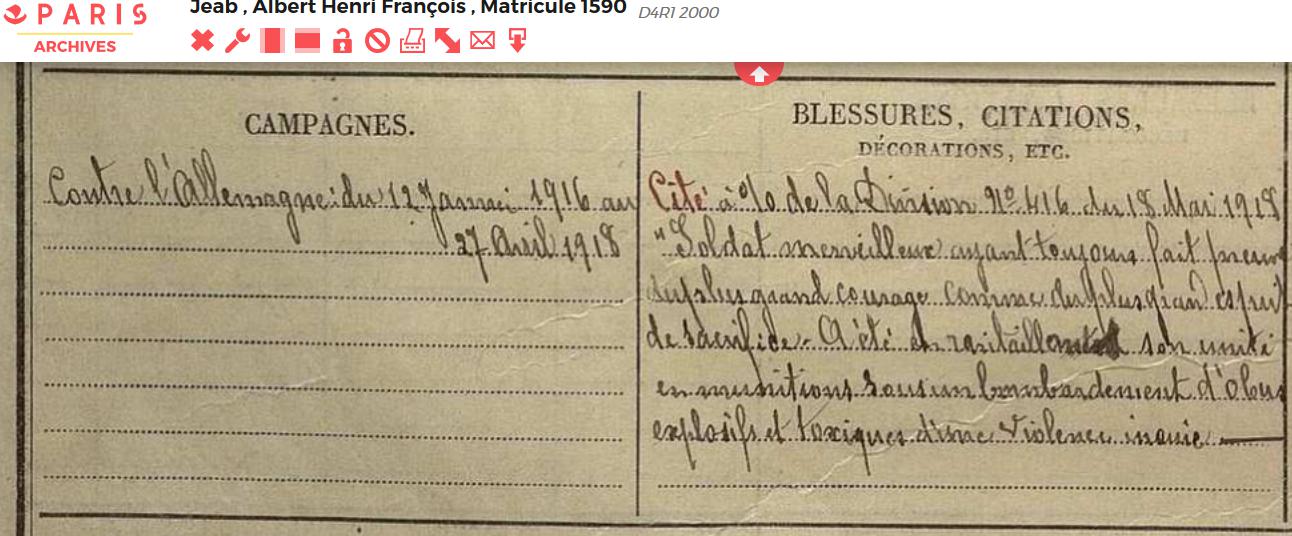 PARIS
ARCHIVES
Jeab , Albert Henri François , Matricule 1590 D4R1 2000
CAMPAGNES.
Contre l'Allemagne: du 12 Janvier 1916 au
27 Avril 1918
BLESSURES, CITATIONS,
DÉCORATIONS, ETC.
Cité à l'o de la Division No 416 du 18 Mai 1918
"Soldat merveilleux ayant toujours fait preuve
du plus grand courage comme du plus grand esprit
de sacrifice. A été en ravitaillant son unité
en munitions sous un bombardement d'obus
explosifs et toxiques d'une violence inouie